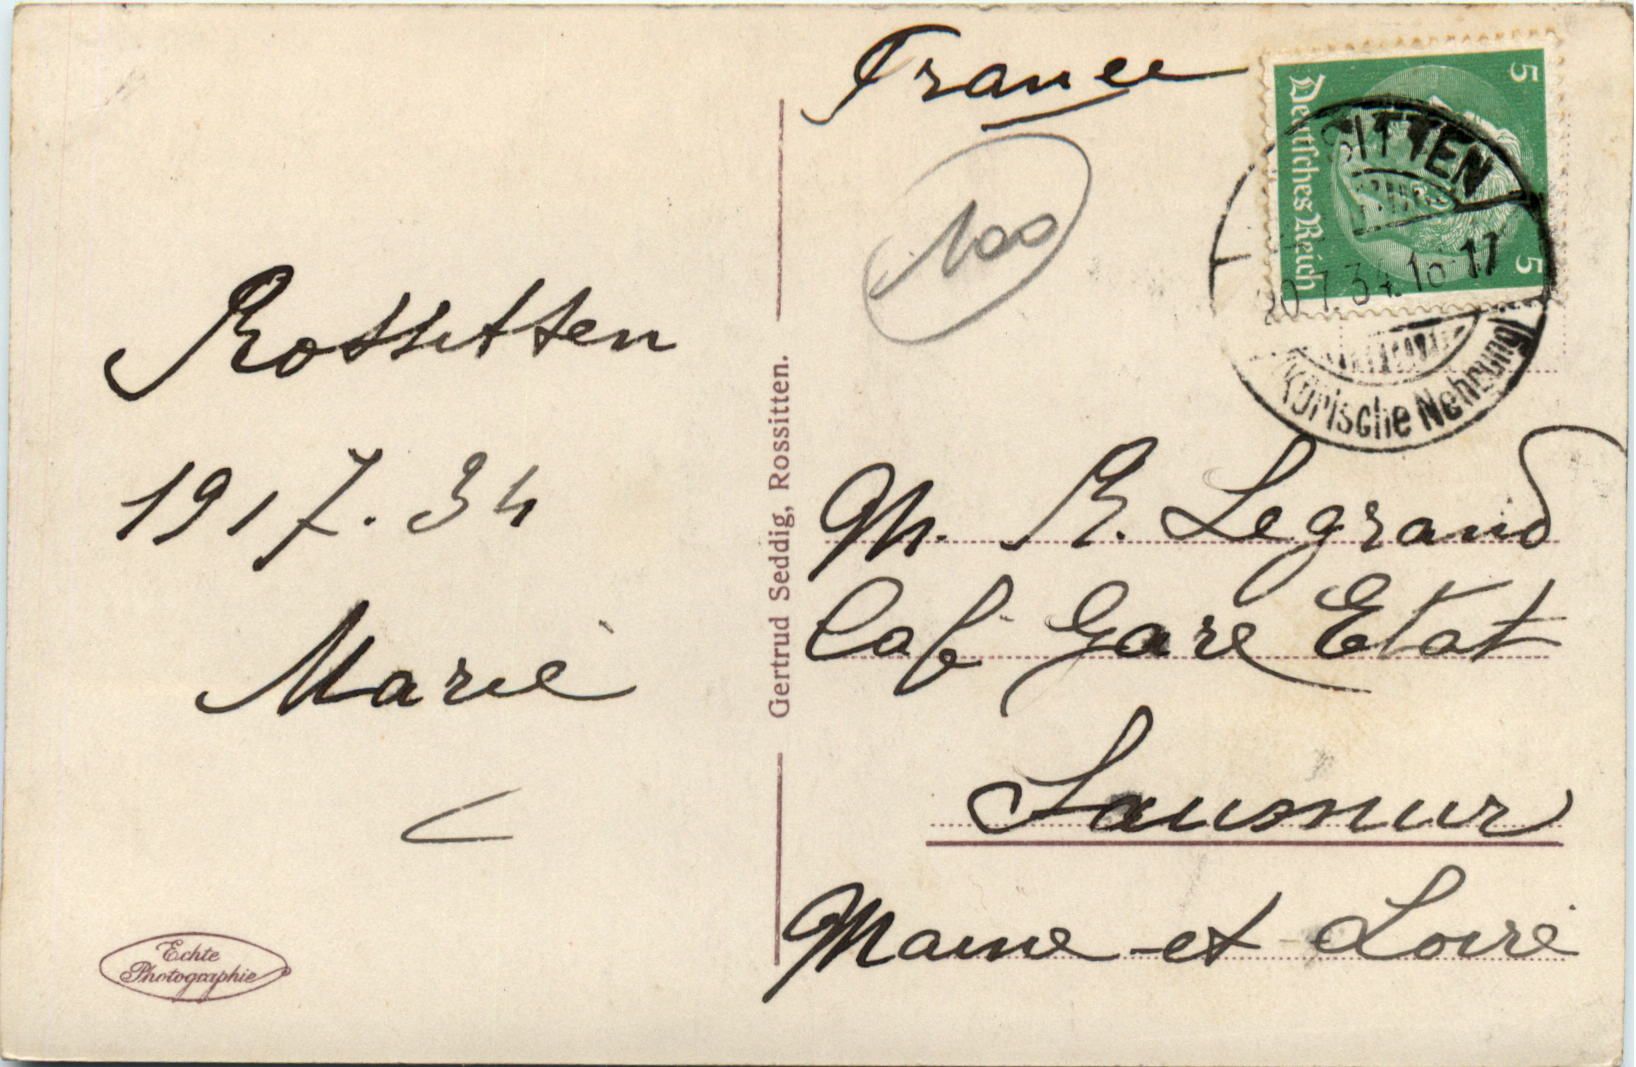 Rossitten
19.7.34
Marie
Echte
Photographie
Gertrud Seddig, Rossitten.
France
100
5
Deutsches Reich
5
SITTEN
20.7.34.16-17
Kurische Nehrung
M. R. Legrand
Caf Gare Etat
Saumur
Maine et Loire